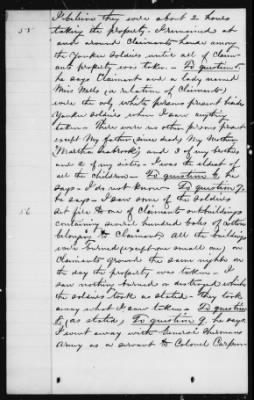 I believe they were about 2 hours
55 taking the property. I remained at
and around Claimants house among
the Yankee Soldiers until all of Claim-
ants property was taken - To question 5
he says Claimant and a lady named
Miss Mells (a relation of Claimants)
were the only white persons present besides
Yankee Soldiers when I saw anything
taken - There were no other persons present
except My father (since dead) My Mother
(Martha) and 3 of my brothers
and 2 of my sisters - I was the oldest of
all the children - To question 6, he
says - I do not know - To question 7, he
says - I saw some of the Soldiers
set fire to one of Claimants outbuildings
56 containing several hundred bales of cotton
belonging to Claimant, all the buildings
were burned (except one small one) on
Claimants ground the same night on
the day the property was taken - I
saw nothing burned or destroyed which
the soldiers took as stated - they took
away what I saw taken - To question
8, (as stated,) To question 9, he says
I went away with General Shermans
Army as a servant to Colonel Carpmen